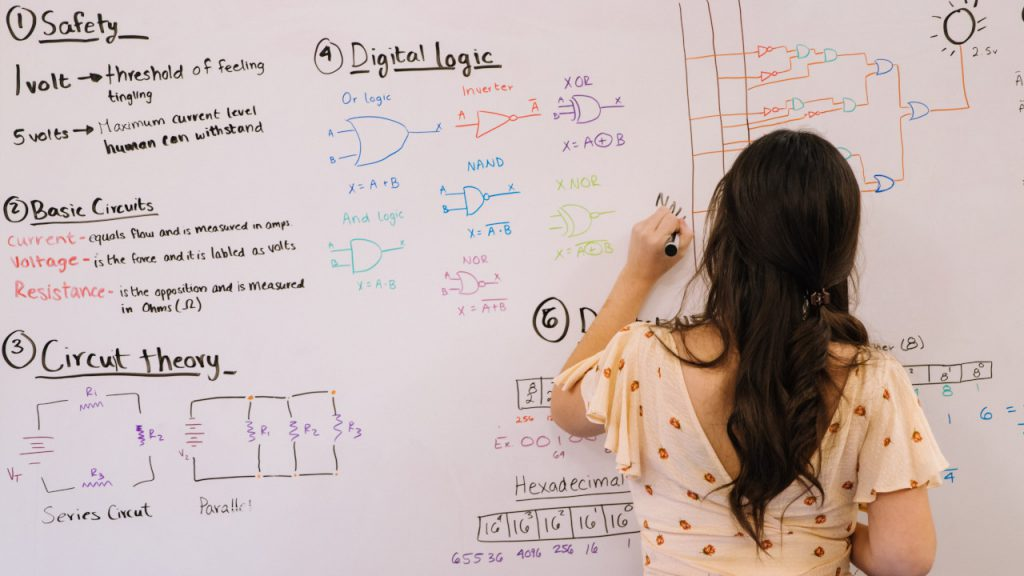 1 Safety
1 volt → threshold of feeling
tingling
5 volts → Maximum current level
human can withstand
2 Basic Circuits
Current - equals flow and is measured in amps.
Voltage - is the force and it is labled as volts
Resistance - is the opposition and is measured
in Ohms (Ω)
3 Circut theory
R1
R2
R3
VT
Series Circut
R1 R2 R3
Parallel
4 Digital logic
Or logic
A
B
X
X = A + B
Inverter
A
A̅
XOR
A
B
X
X = A ⊕ B
NAND
A
B
X
X = A̅·̅B̅
And logic
A
B
X
X = A·B
XNOR
X = A̅⊕̅B̅
NOR
A
B
X
X = A̅+̅B̅
2.5v
5
(8)
8¹ 8⁰
8 1
Ex. 00100
64
6 =
Hexadecimal
16⁴ 16³ 16² 16¹ 16⁰
65536 4096 256 16 1